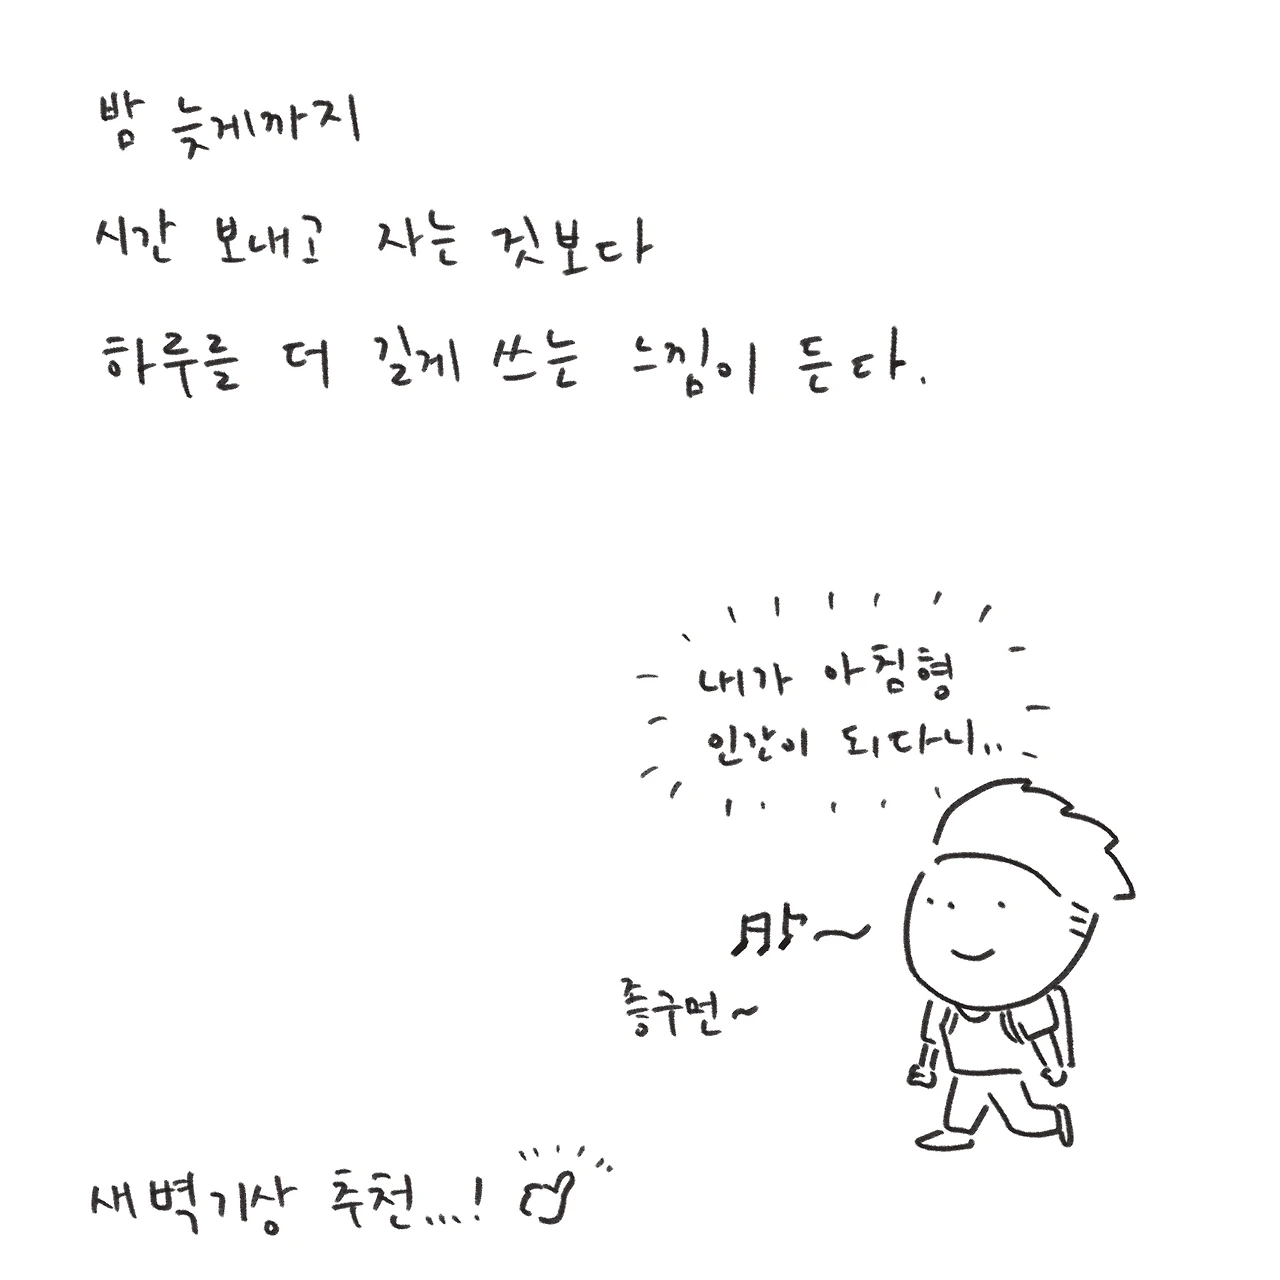 밤 늦게까지
시간 보내고 자는 것보다
하루를 더 길게 쓰는 느낌이 든다.
내가 아침형
인간이 되다니..
♫♪~
좋구먼~
새벽기상 추천...!